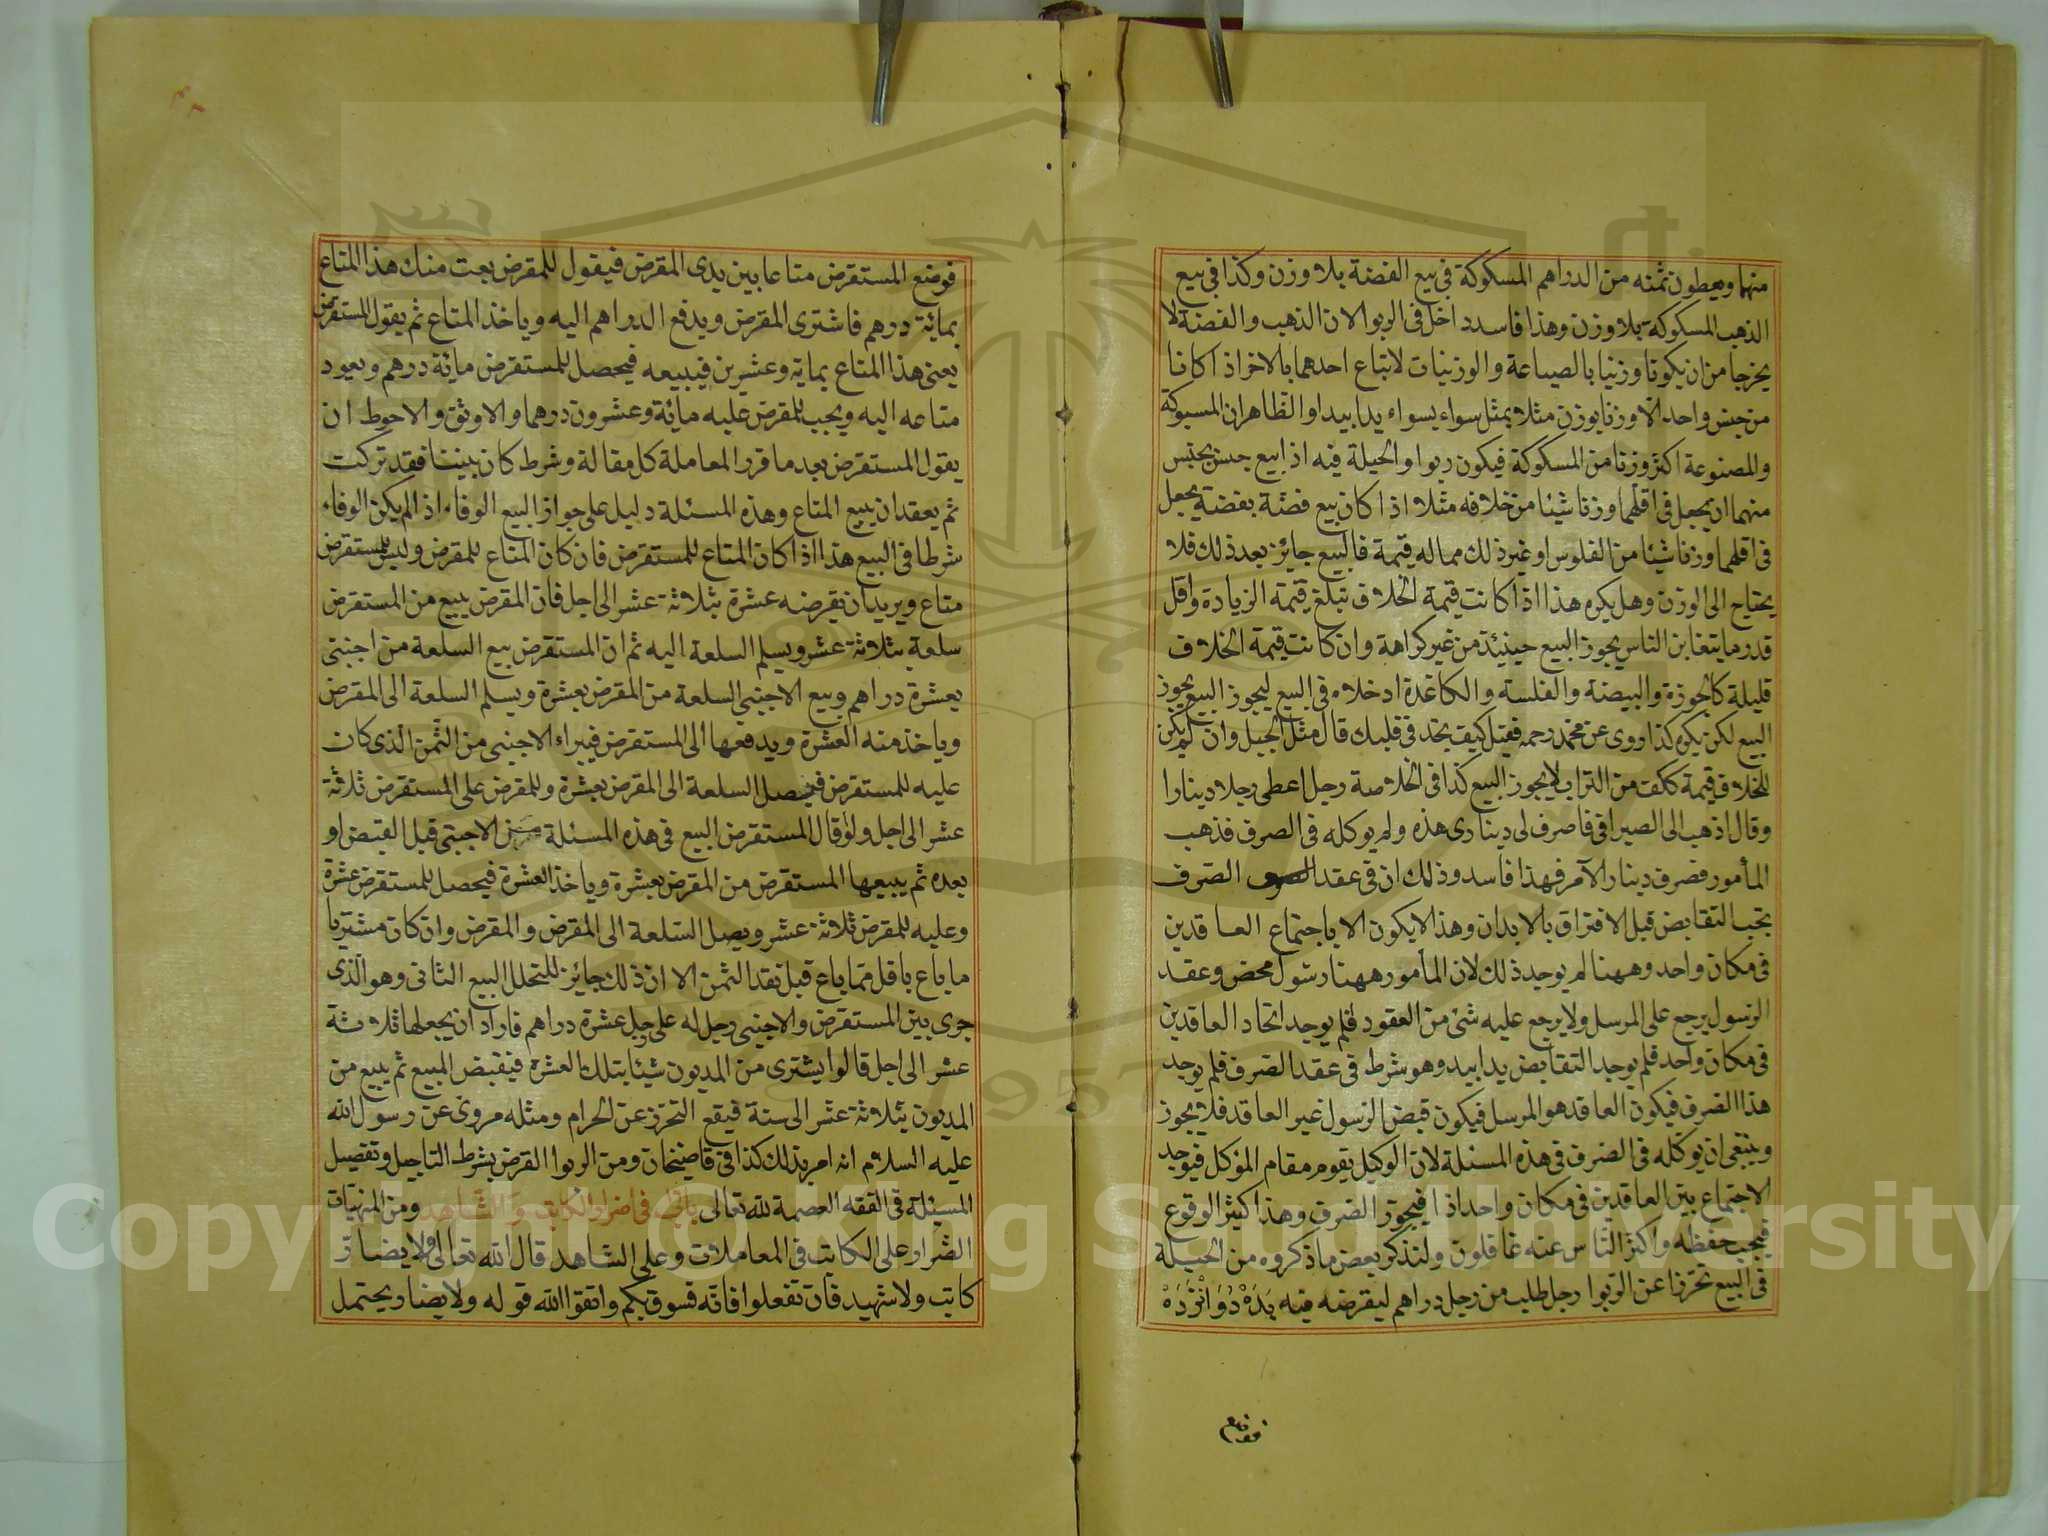 منها ويعطون ثمنه من الدراهم المسكوكة في بيع الفضة بلا وزن وكذا في بيع
الذهب المسكوكة بلا وزن وهذا فاسد داخل في الربوا لان الذهب والفضة لا
يخرجا من ان يكونا وزنيا بالصياعة والوزنيات لا تباع احدهما بالاخر اذا كانا
من جنس واحد الا وزنا بوزن مثلا بمثل سواء بسواء يدا بيد او الظاهر ان المسبوكة
والمصنوعة اكثر وزنا من المسكوكة فيكون ربوا والحيلة فيه اذا بيع جنس بجنس
منهما ان يجعل في اقلهما وزنا شيئا من خلافه مثلا اذا كان بيع فضة بفضة يجعل
في اقلهما وزنا شيئا من الفلوس او غير ذلك مما له قيمة فالبيع جايز بعد ذلك فلا
يحتاج الى الوزن وهل يكره هذا اذا كانت قيمة الخلاف تبلغ قيمة الزيادة واقل
قدر ما يتغابن الناس يجوز البيع حينئذ من غير كراهة وان كانت قيمة الخلاف
قليلة كالجوزة والبيضة والفلسة والكاغدة ادخلاه في البيع ليجوز البيع يجوز
البيع لكن يكره كذا روى عن محمد رحمه فقيل كيف تجد في قلبك قال مثل الجبل وان لم يكن
للخلاف قيمة ككف من التراب لا يجوز البيع كذا في الخلاصة رجل اعطى رجلا دينارا
وقال اذهب الى الصيرافي فاصرف لي ديناري هذه ولم يوكله في الصرف فذهب
المأمور فصرف دينار الآمر فهذا فاسد وذلك ان في عقد الصرف
يجب التقابض قبل الافتراق بالابدان وهذا لا يكون الا باجتماع العاقدين
في مكان واحد وههنا لم يوجد ذلك لان المأمور ههنا رسول محض وعقد
الرسول يرجع على المرسل ولا يرجع عليه شئ من العقود فلم يوجد اتحاد العاقدين
في مكان واحد فلم يوجد التقابض يدا بيد وهو شرط في عقد الصرف فلم يوجد
هذا الصرف فيكون العاقد هو المرسل فيكون قبض الرسول غير العاقد فلا يجوز
وينبغي ان يوكله في الصرف في هذه المسئلة لان الوكيل يقوم مقام المؤكل فيوجد
الاجتماع بين العاقدين في مكان واحد اذا فيجوز الصرف وهذا كثير الوقوع
فيجب حفظه واكثر الناس عنه غافلون ولنذكر بعض ما ذكروه من الحيلة
في البيع تحرزا عن الربوا رجل طلب من رجل دراهم ليقرضه منه بَدَهْ دُوَانْزَدَهْ
فوضع
فوضع المستقرض متاعا بين يدى المقرض فيقول للمقرض بعت منك هذا المتاع
بمائة درهم فاشترى المقرض ويدفع الدراهم اليه وياخذ المتاع ثم يقول المستقرض
بعني هذا المتاع بماية وعشرين فيبيعه فيحصل للمستقرض مائة درهم ويعود
متاعه اليه ويجب للمقرض عليه مائة وعشرون درهما والاوثق والاحوط ان
يقول المستقرض بعد ما قرر المعاملة كل مقالة وشرط كان بيننا فقد تركت
ثم يعقدان بيع المتاع وهذه المسئلة دليل على جواز البيع الوفاء اذا لم يكن الوفاء
شرطا في البيع هذا اذا كان المتاع للمستقرض فان كان المتاع للمقرض وليس للمستقرض
متاع ويريد ان يقرضه عشرة بثلاثة عشر الى اجل فان المقرض يبيع من المستقرض
سلعة بثلاثة عشر ويسلم السلعة اليه ثم ان المستقرض بيع السلعة من اجنبى
بعشرة دراهم وبيع الاجنبي السلعة من المقرض بعشرة ويسلم السلعة الى المقرض
وياخذ منه العشرة ويدفعها الى المستقرض فيبراء الاجنبي من الثمن الذى كان
عليه للمستقرض فيصل السلعة الى المقرض بعشرة وللمقرض على المستقرض ثلاثة
عشر الى اجل ولو قال المستقرض البيع في هذه المسئلة من الاجنبي قبل القبض او
بعده ثم يبيعها المستقرض من المقرض بعشرة وياخذ العشرة فيحصل للمستقرض عشرة
وعليه للمقرض ثلاثة عشر ويصل السلعة الى المقرض والمقرض وان كان مشتريا
ما باع باقل مما باع قبل نقد الثمن الا ان ذلك جايز للتحلل البيع الثاني وهو الذى
جرى بين المستقرض والاجنبي رجل له على رجل عشرة دراهم فاراد ان يجعلها ثلاثة
عشر الى اجل قالوا يشترى من المديون شيئا بتلك العشرة فيقبض المبيع ثم يبيع من
المديون بثلاثة عشر الى سنة فيقع التحرز عن الحرام ومثله مروى عن رسول الله
عليه السلام انه امر بذلك كذا في قاضيخان ومن الربوا القرض بشرط التاجيل وتفصيل
المسئلة في الفقه العصمة لله تعالى باب في اضرار الكاتب والشاهد ومن المنهيات
الضرار على الكاتب في المعاملات وعلى الشاهد قال الله تعالى ولا يضار
كاتب ولا شهيد فان تفعلوا فانه فسوق بكم واتقوا الله قوله ولا يضار يحتمل
Copyright © King Saud University
1957